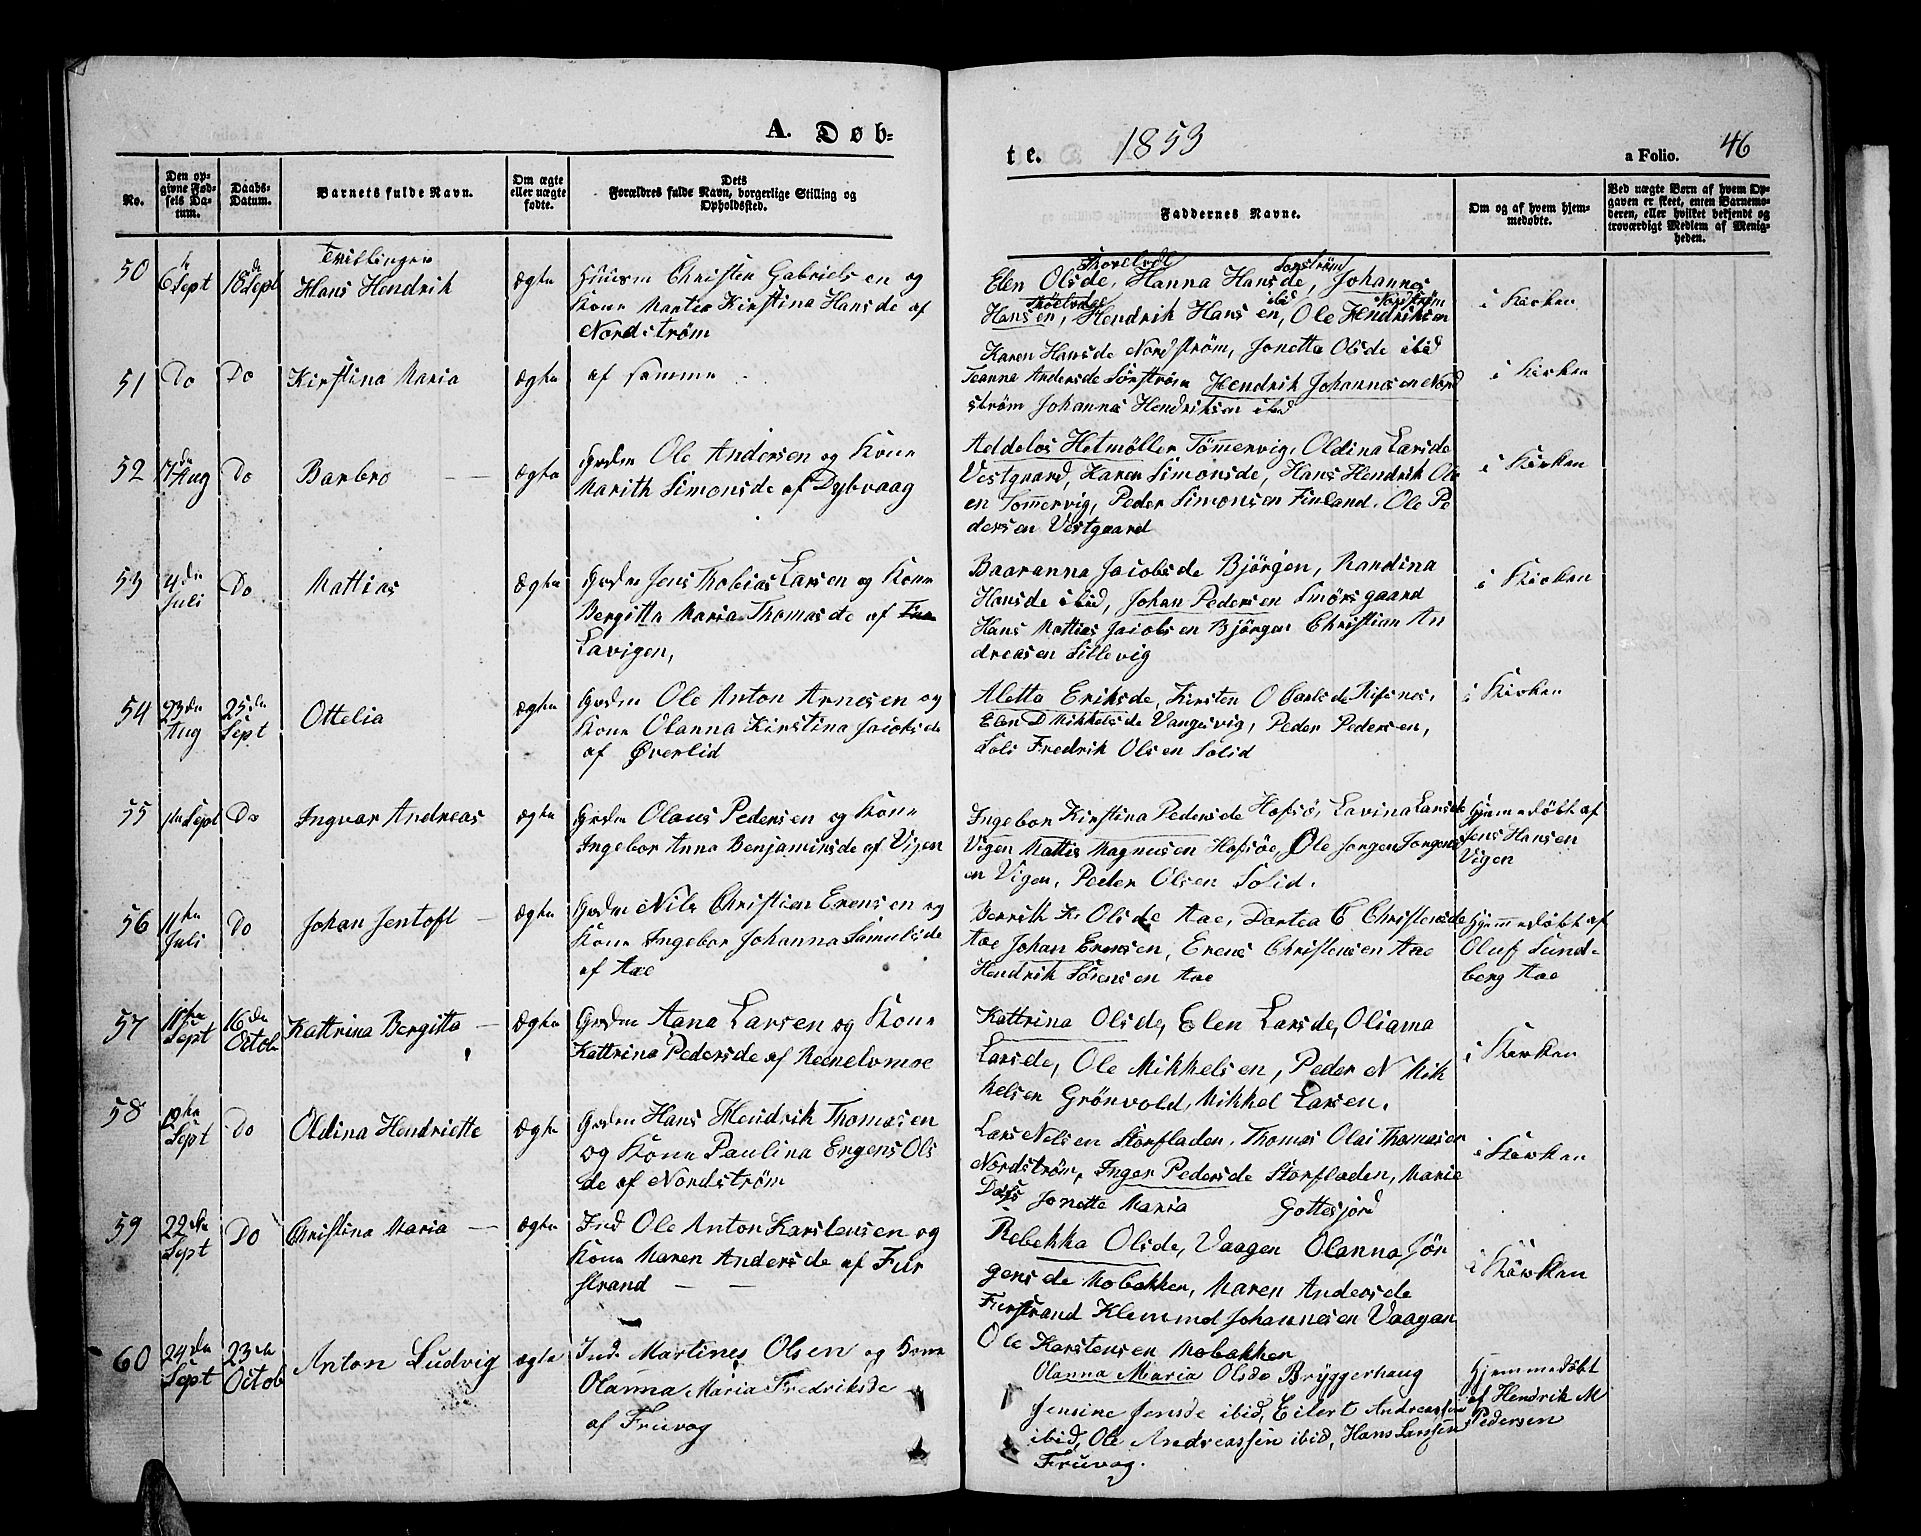 A. Døb-
te. 1853
a Folio. 46
No.
Den op-
givne Fød-
sels Da-
tum.
Daabs-
Datum.
Barnets fulde Navn.
Om ægte
eller uægte
fødte.
Dets
Forældres fulde Navn, borgerlige Stilling og
Opholdssted.
Faddernes Navne.
Om og af hvem hjem-
medøbte.
Ved uægte Børn af hvem Op-
gaven er skeet, enten Barnemo-
deren, eller hvilket bekjendt og
troværdigt Medlem af Menig-
heden.
50
6 Sept
18de Sept
Tvillinger
Hans Hendrik
Ægte
Huusm Christen Gabrielsen og
Kone Martea Kirstina Hansde af
Nordstrøm
Elen Olsde, Hanna Hansde, Johannes
Hansen, Hendrik Hansen, Ole Hendriksen
i Kirken
51
Do
Do
Kirstina Maria
Ægte
af samme
Karen Hansde Nordstrøm, Jonetta Olsde ibid
Jeanna Andersde Sørstrøm Hendrik Johannesen Nord
strøm Johannes Hendriksen ibid
i Kirken
52
Aug
Do
Barbro
Ægte
Grdm Ole Andersen og Kone
Marith Simonsde af Dybvaag
Addelos Hetmøller Tømmervig, Oldina Larsde
Vestgaard, Karen Simonsde, Hans Hendrik Ols
en Tommervig, Peder Simonsen Finland. Ole Pe
dersen Vestgaard
i Kirken
53
4de
Juli
Do
Mattias
Ægte
Grdm Jens Tobias Larsen og Kone
Bergitta Maria Thomasde af
Lavigen,
Baaranna Jacobsde Bjørgen, Randina
Hansde ibid, Johan Pedersen Smørsgaard
Hans Mattias Jacobsen Bjørgen Christian An
dreasen Sillevig
i Kirken
54
23de
Aug
25de
Sept
Ottelia
Ægte
Grdm Ole Anton Arnesen og
Kone Olanna Kirstina Jacobsde
af Øverlid
Aletta Eriksde, Kirsten O Carlsde Refsnes,
Elen D Mikkelsde Vangsvig, Peder Pedersen,
Soli Fredrik Olsen Solid
i Kirken
55
Sept
Do
Ingvar Andreas
Ægte
Grdm Olaus Pedersen og Kone
Ingebor Anna Benjaminsde af Vigen
Ingebor Kirstina Pedersde Hofsø, Lavina Larsde
Vigen Mattis Magnusen Hofsøe, Ole Jørgen Jørgens
en Vigen, Peder Olsen Solid.
Hjemmedøbt af
Jens Hansen
Vigen
56
11te
Juli
Do
Johan Jentoft
Ægte
Grdm Nils Christian Erensen og
Kone Ingebor Johanna Samulsde
af Aae
Berrith K Olsde Aae, Dortea C Christensde
Aae Johan Erensen, Erens Christensen Aae
Hendrik Sörensen Aae
Hjemmedøbt af
Oluf Lund-
berg Aae
57
11te
Sept
16de
Octob
Kattrina Bergitta
Ægte
Grdm Aana Larsen og Kone
Kattrina Pedersde af Meenelvmoe
Kattrina Olsde, Elen Larsde, Oliama
Larsde, Ole Mikkelsen, Peder N Mik
kelsen Grönvold, Mikkel Larsen.
i Kirken
58
Sept
Do
Oldina Hendriette
Ægte
Grdm Hans Hendrik Thomasen
og Kone Paulina Engens Ols
de af Nordstrøm
Lars Nelsen Storfladen, Thomas Olai Thomasen
Nordstrøm, Inger Pedersde Storfladen, Marie
Jonette Maria Gottesjord
i Kirken
59
22de
Sept
Do
Christina Maria
Ægte
Ind Ole Anton Karstensen og
Kone Maren Andersde af Fur
strand
Rebekka Olsde, Vaagen Olanna Jör
gensde Mobakken, Maren Andersde
Furstrand Klemmed Johannesen Vaagan
Ole Karstensen Mobakken
i Kirken
60
24de
Sept
23de
Octob
Anton Ludvig
ægte
Ind. Martines Olsen og Kone
Olanna Maria Fredriksde
af Fruvog
Olanna Maria Olsde Bryggerhaug
Jensine Jensde ibid, Eilert Andreassen
ibid, Ole Andreassen ibid, Hans Larssen
Fruvog.
Hjemmedøbt
af Hendrik M
Pedersen